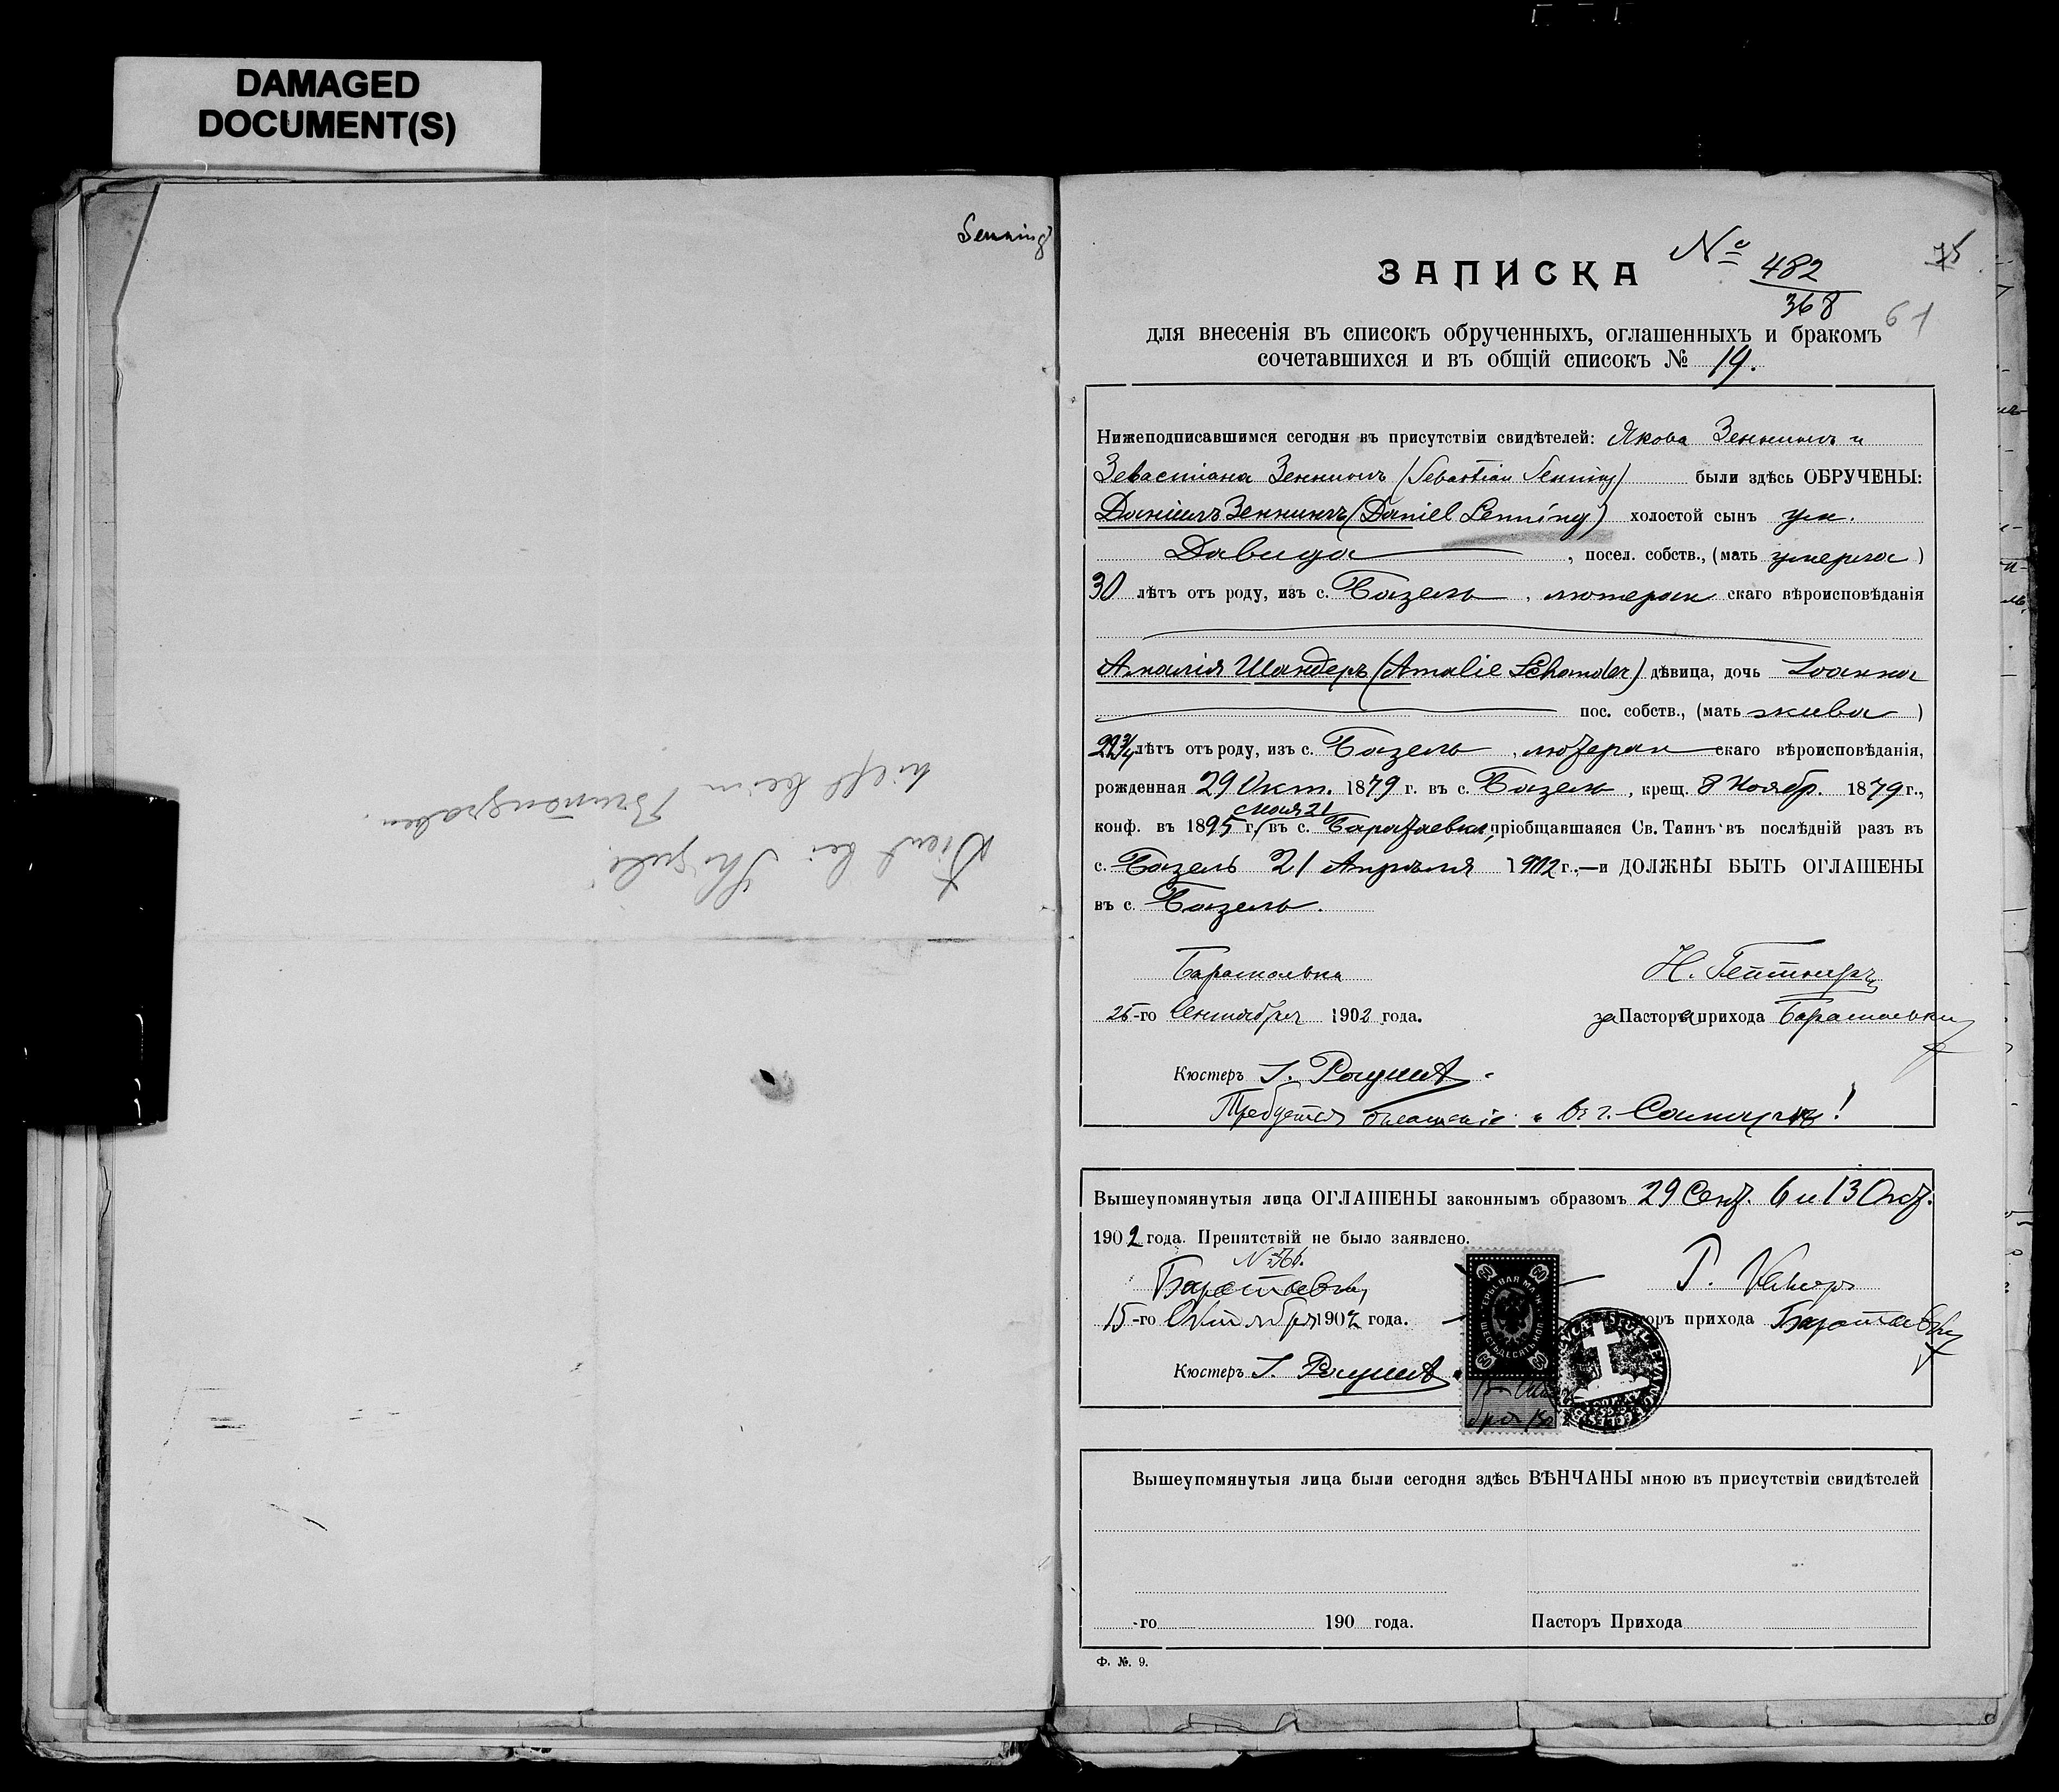 DAMAGED
DOCUMENT(S)
Senning
Dient bei
hielt beim
ЗАПИСКА № 482
368
75
61
для внесенія въ список обрученныхъ, оглашенныхъ и бракомъ
сочетавшихся и въ общій списокъ № 19.
Нижеподписавшимся сегодня въ присутствіи свидѣтелей: Якова Зеннингъ и
Зебастіана Зеннингъ (Sebastian Senning) были здѣсь ОБРУЧЕНЫ:
Даніилъ Зеннингъ (Daniel Senning) холостой сынъ ум.
Давида, посел. собств., (мать умерла)
30 лѣтъ отъ роду, изъ с. Базель, лютеран скаго вѣроисповѣданія
Амалія Шандеръ (Amalie Schander) дѣвица, дочь Іоанна
пос. собств., (мать жива)
22¾ лѣтъ отъ роду, изъ с. Базель, лютеран скаго вѣроисповѣданія,
рожденная 29 Окт. 1879 г. въ с. Базель, крещ. 8 Ноябр. 1879 г.,
мая 21
конф. въ 1895 г. въ с. Баратаевка, пріобщавшаяся Св. Таинъ въ послѣдній разъ въ
с. Базель 21 Апрѣля 1902 г.,—и ДОЛЖНЫ БЫТЬ ОГЛАШЕНЫ
въ с. Базель.
Баратаевка
25-го Сентября 1902 года. за Пастора прихода Баратаевки
Кюстеръ
Требуется оглашеніе въ г.
Вышеупомянутыя лица ОГЛАШЕНЫ законнымъ образомъ 29 Сент. 6 и 13 Окт.
1902 года. Препятствій не было заявлено.
Баратаевка
15-го Октября 1902 года. оръ прихода Баратаевки
Кюстеръ
60 60
ГЕРБОВАЯ МАРКА
ШЕСТЬДЕСЯТЪ КОП.
60 60
Вышеупомянутыя лица были сегодня здѣсь ВѢНЧАНЫ мною въ присутствіи свидѣтелей
-го 190 года. Пасторъ Прихода
Ф. №. 9.